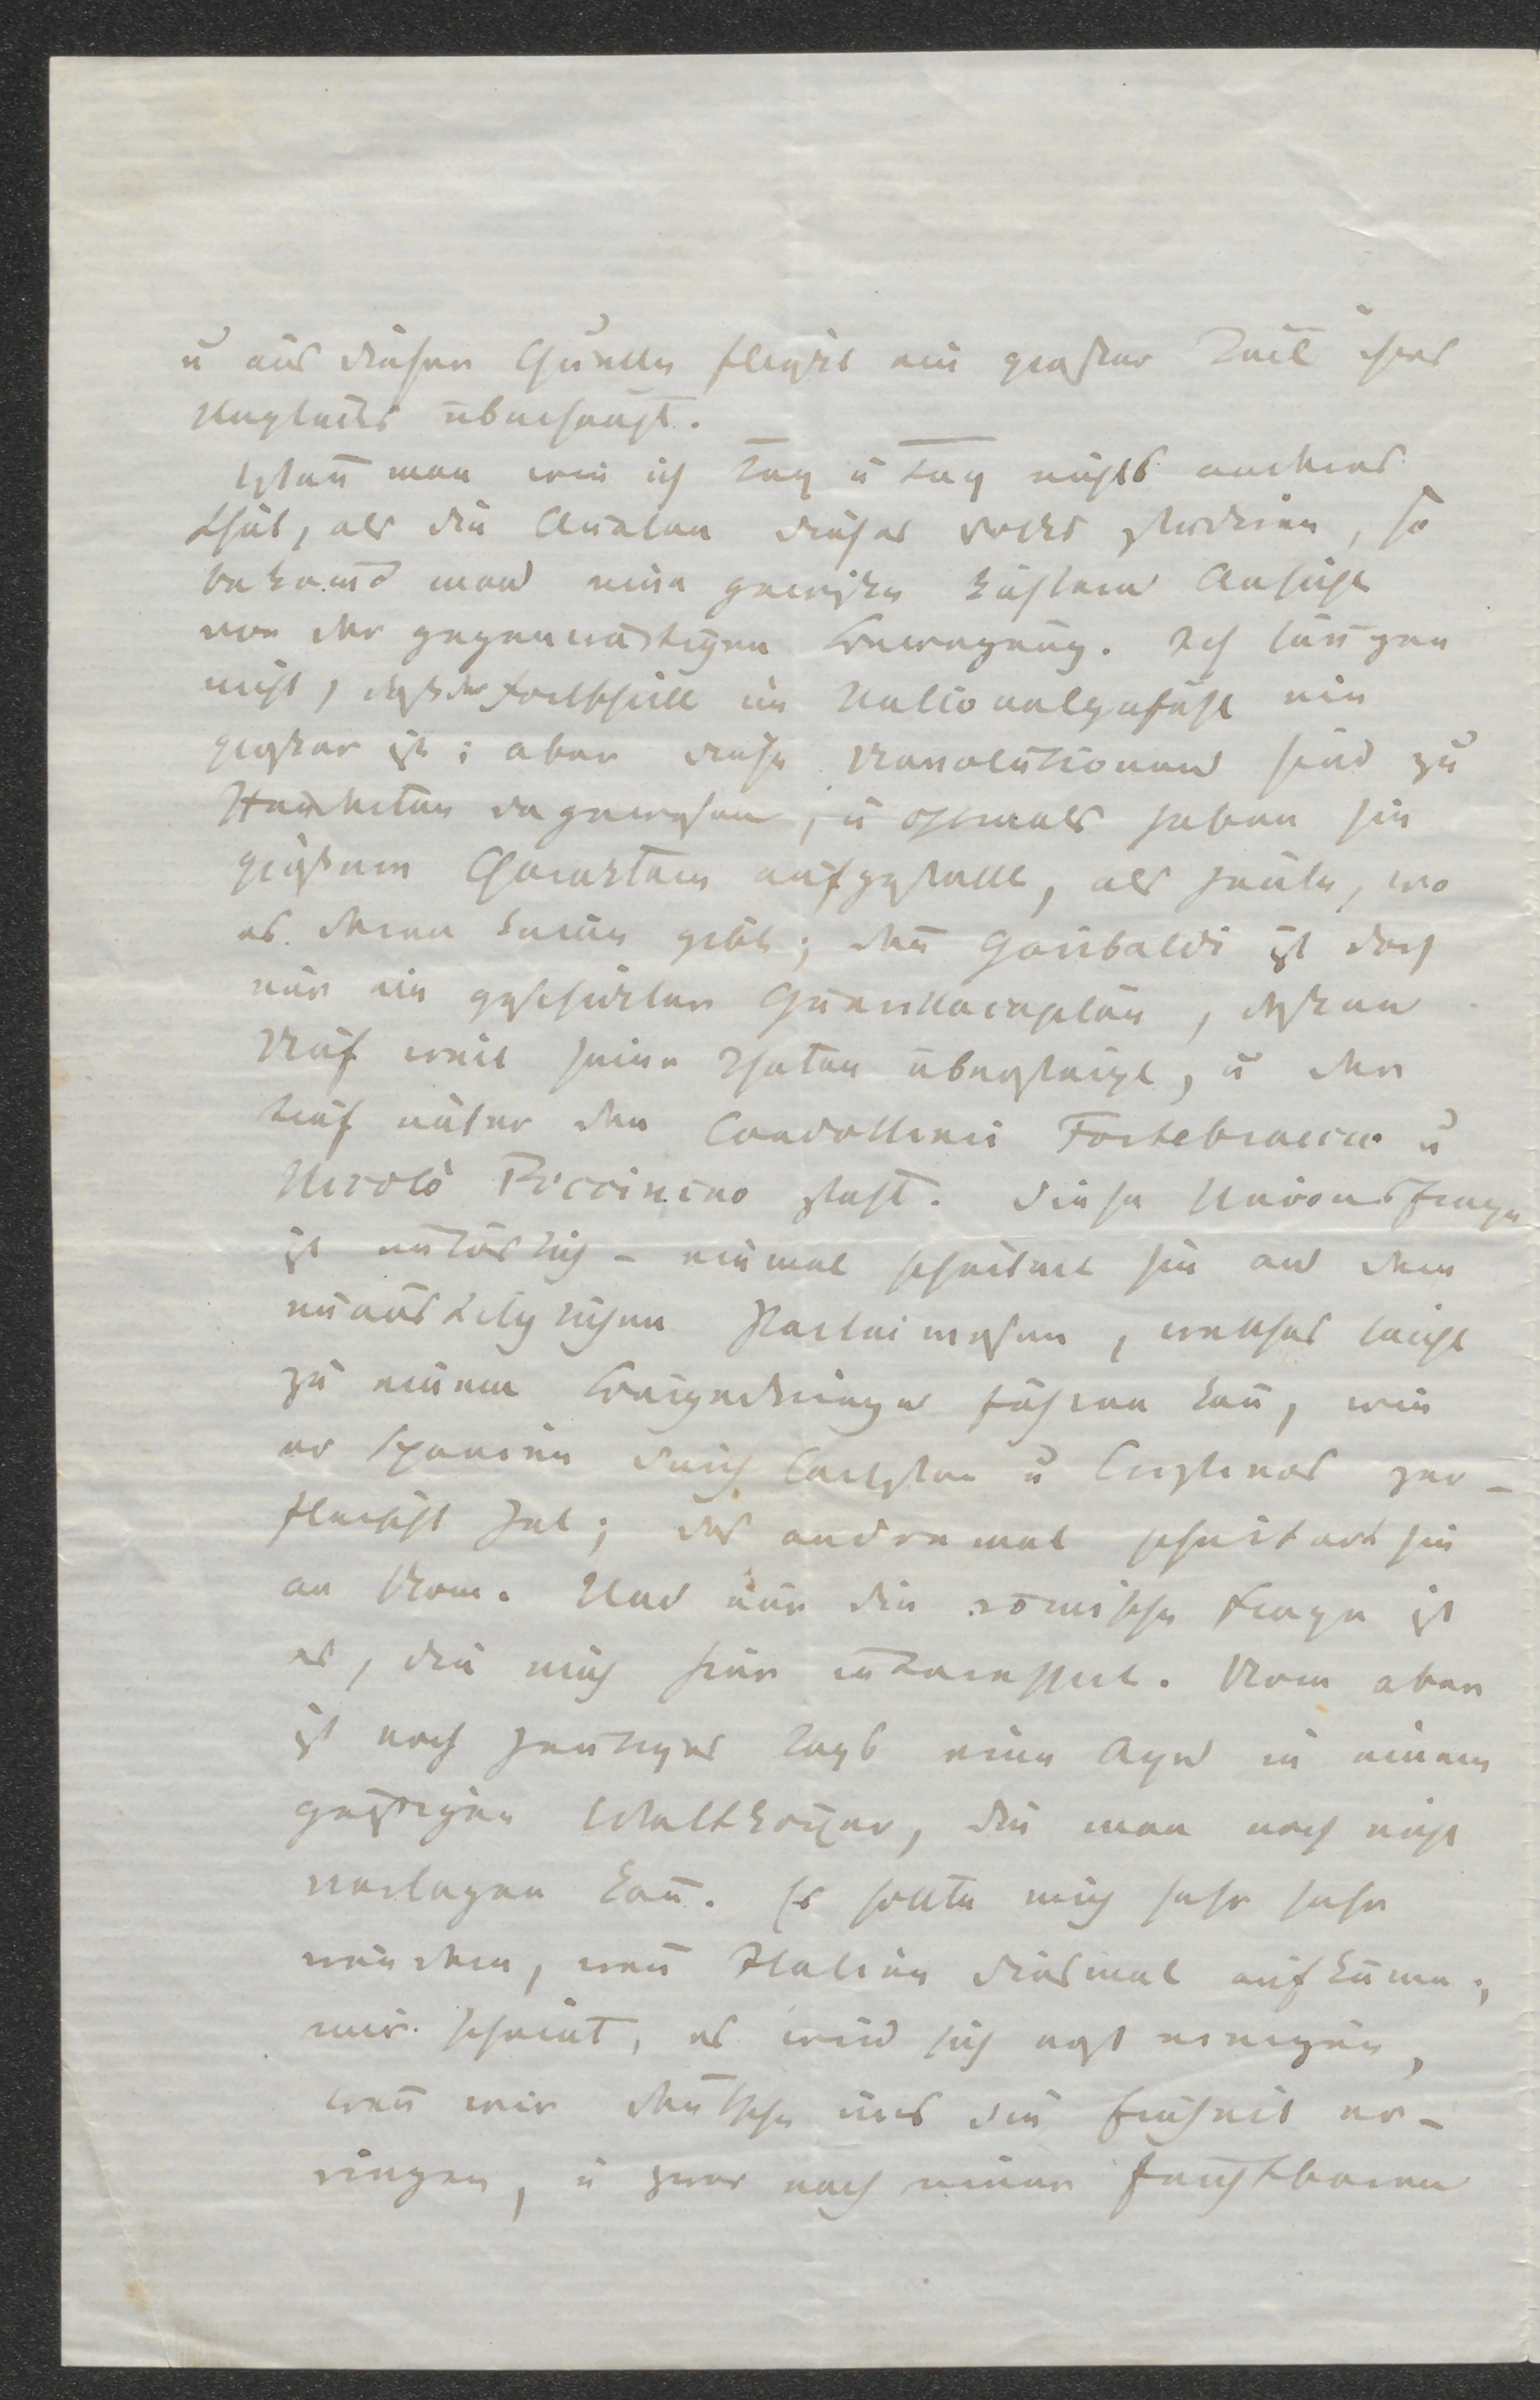 u aus diesen Quellen fließt ein großer Teil ihres
Unglücks überhaupt.
Wen̄ man wie ich Tag u Tag nichts anderes
thut, als die Annalen dieses Volks studieren, so
bekom̄t man eine gewisse kühlere Ansicht
von der gegenwärtigen Bewegung. Ich läugne
nicht, daß der Fortschritt im Nationalgefühl ein
großer ist; aber diese Revolutionen sind zu
Hunderten dagewesen, u oftmals haben sie
größere Charaktere aufgestellt, als heute, wo
es deren keine gibt; den̄ Garibaldi ist doch
nur ein geschickter Guerillacapitän, dessen
Ruf weit seine Thaten übersteigt, u der
tief unter den Condottieri Fortebraccio u
Nicolò Piccinino steht. Diese Unionsfrage
ist unlöslich – einmal scheitert sie an dem
unaustilglichen Parteiwesen, welches leicht
zu einem Bürgerkriege führen kan̄, wie
er Spanien durch Carlisten u Cristinos zer-
fleischt hat; das andremal scheitert sie
an Rom. Und nur die römische Frage ist
es, die mich hier interessirt. Rom aber
ist noch heutiges Tags eine Axe in einem
geistigen Weltkörper, die man noch nicht
verlegen kan̄. Es sollte mich sehr sehr
wundern, wen̄ Italien diesmal aufkäme;
mir scheint, es wird sich erst einigen,
wen̄ wir Deutsche uns die Einheit er-
ringen, u zwar nach einer furchtbaren